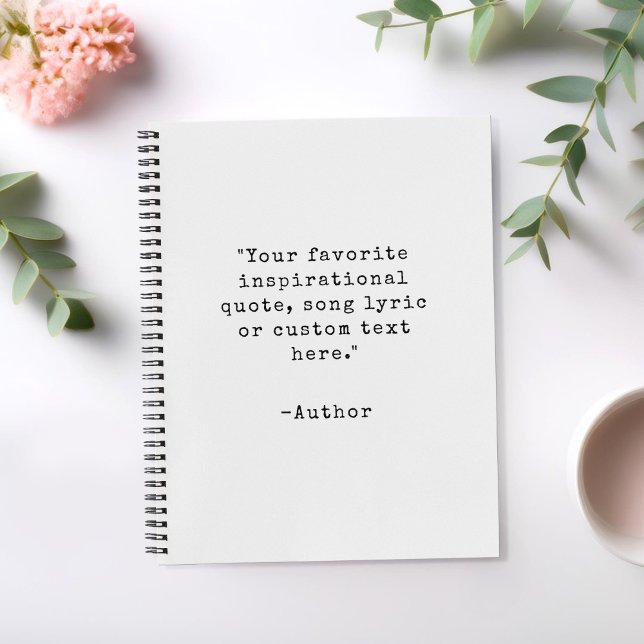 "Your favorite
inspirational
quote, song lyric
or custom text
here."
-Author